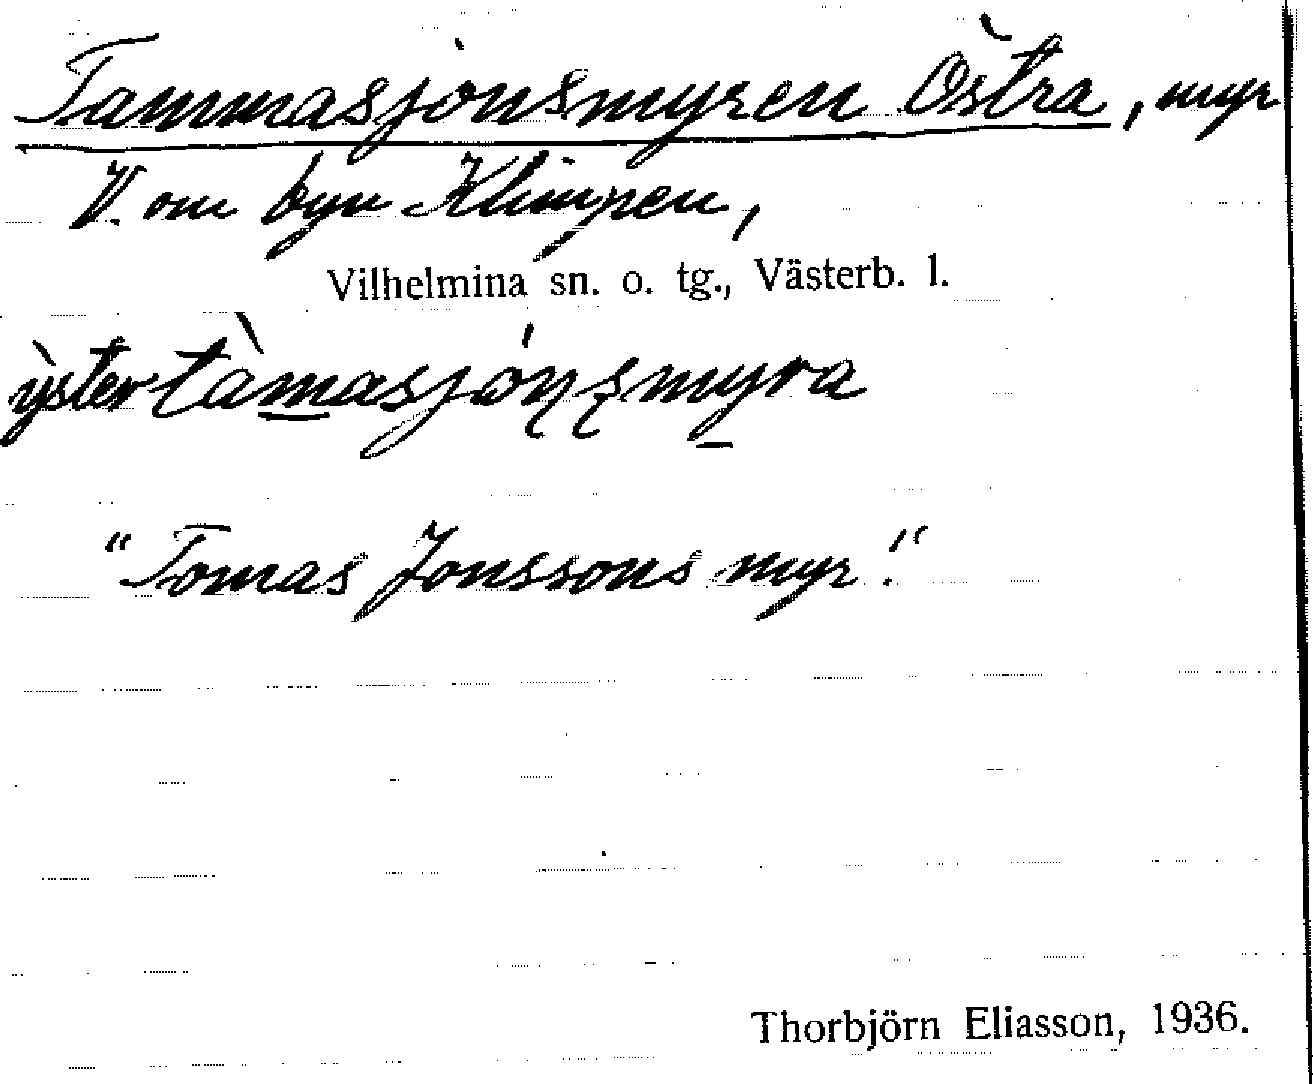 Tammasjonsmyren Östra, myr
V. om byn Klimpen,
Vilhelmina sn. o. tg., Västerb. l.
ỳster tàm̲asjóṇṣmy̲ra
"Tomas Jonssons myr."
Thorbjörn Eliasson, 1936.